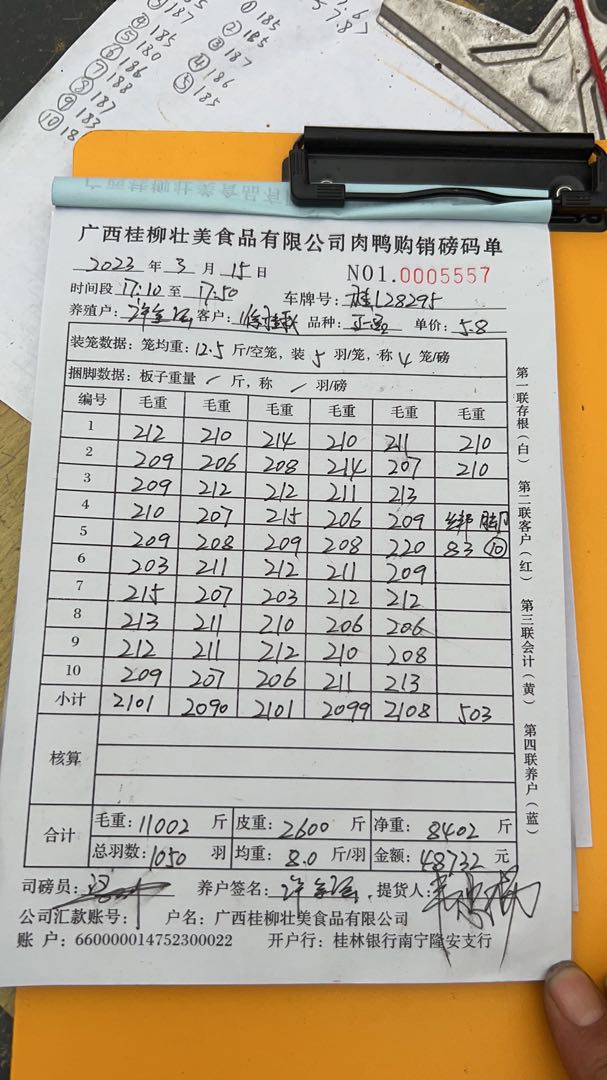 ⑤187
④185
⑤180
⑥186
⑦188
⑧187
⑨183
⑩18
①185
②185
③187
④186
⑤185
7.87
广西桂柳壮美食品有限公司肉鸭购销磅码单
2023 年 3 月 15 日 NO1.0005557
时间段 17:10 至 17:50 车牌号: 桂128295
养殖户: 客户: 品种: 单价: 5.8
装笼数据: 笼均重: 12.5 斤/空笼, 装 5 羽/笼, 称 4 笼/磅
捆脚数据: 板子重量 / 斤, 称 / 羽/磅
编号 毛重 毛重 毛重 毛重 毛重 毛重
1 212 210 214 210 211 210
2 209 206 208 214 207 210
3 209 212 212 211 213
4 210 207 215 206 209 绑脚
5 209 208 209 208 220 83 ⑩
6 203 211 212 211 209
7 215 207 203 212 212
8 213 211 210 206 206
9 212 211 212 210 208
10 209 207 206 211 213
小计 2101 2090 2101 2099 2108 503
核算
合计 毛重: 11002 斤 皮重: 2600 斤 净重: 8402 斤
总羽数: 1050 羽 均重: 8.0 斤/羽 金额: 48732 元
司磅员: 养户签名: 提货人:
公司汇款账号: 户名: 广西桂柳壮美食品有限公司
账 户: 660000014752300022 开户行: 桂林银行南宁隆安支行
第一联存根(白) 第二联客户(红) 第三联会计(黄) 第四联养户(蓝)